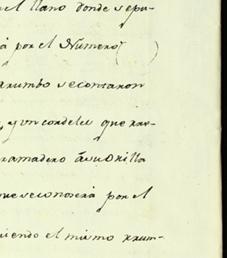 el llano donde sepu-
à por el Numero ( )
rumbo secontaron
, y un cordeles que xre-
ramadero àsuorilla
que seconoserà por el
iendo el mismo xrum-